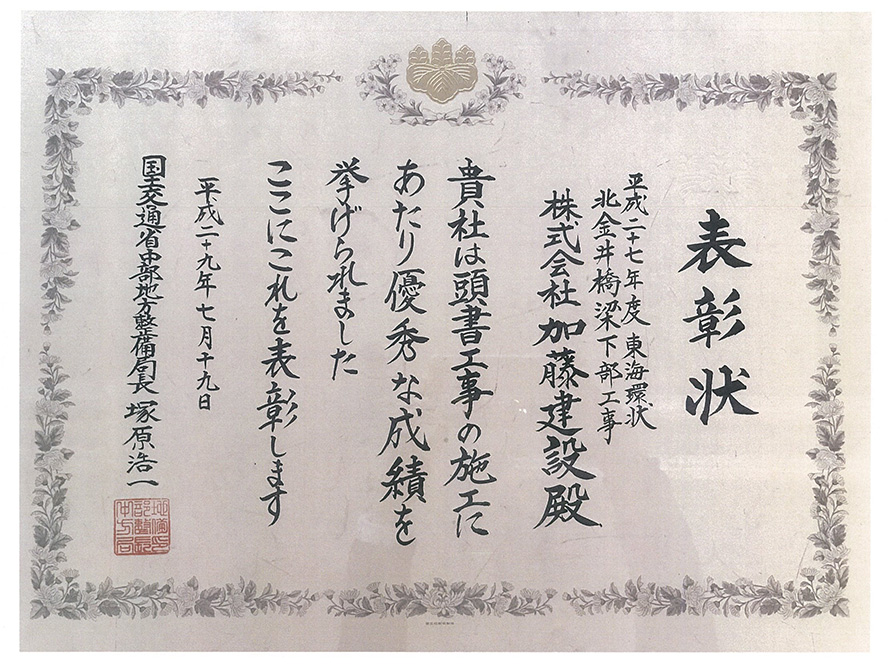 表彰状
平成二十七年度 東海環状
北金井橋梁下部工事
株式会社 加藤建設殿
貴社は頭書工事の施工に
あたり優秀な成績を
挙げられました
ここにこれを表彰します
平成二十九年七月十九日
国土交通省中部地方整備局長 塚原浩一